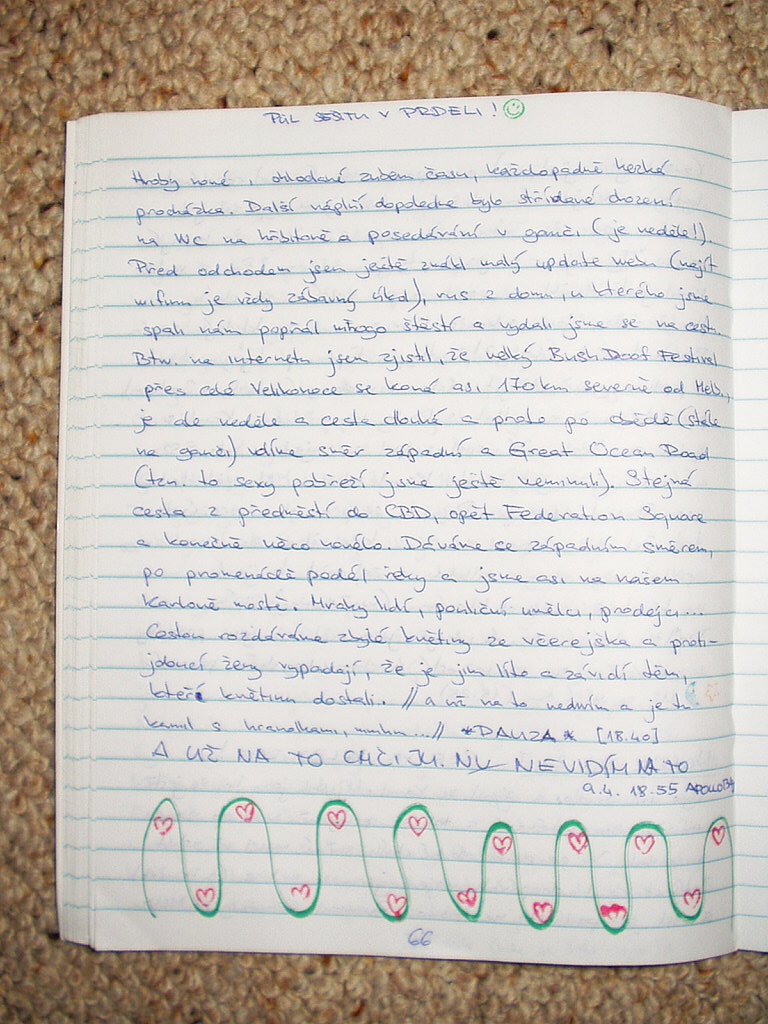 PŮL SEŠITU V PRDELI!
Hroby nové, ohlodané zubem času, každopádně hezká
procházka. Další náplní dopoledne bylo střídané chození
na WC na hřbitově a posedávání v ganči. (je neděle!).
Před odchodem jsem ještě zmákl malý update webu (najít
wifinu je vždy zábavný úkol), rus z domu, u kterého jsme
spali nám popřál mnogo štěstí a vydali jsme se na cestu.
Btw. na internetu jsem zjistil, že velký Bush Doof Festival
přes celé Velikonoce se koná asi 170 km severně od Melb.,
je ale neděle a cesta dlouhá a proto po obědě (stále
na ganči) volíme směr západní a Great Ocean Road
(tzn. to sexy pobřeží jsme ještě neminuli). Stejná
cesta z předměstí do CBD, opět Federation Square
a konečně něco nového. Dáváme se západním směrem,
po promenádě podél řeky a jsme asi na našem
Karlově mostě. Mraky lidí, pouliční umělci, prodejci...
Cestou rozdáváme zbylé květiny ze včerejška a proti-
jdoucí ženy vypadají, že je jim líto a závidí těm,
které květinu dostali. // a už na to nevidím a je tu
kamil s hranolkami, mmhm...// *PAUZA* [18.40]
A UŽ NA TO CHČIJU. NEVIDÍM NA TO
9.4. 18.55 APOLLO BAY
66